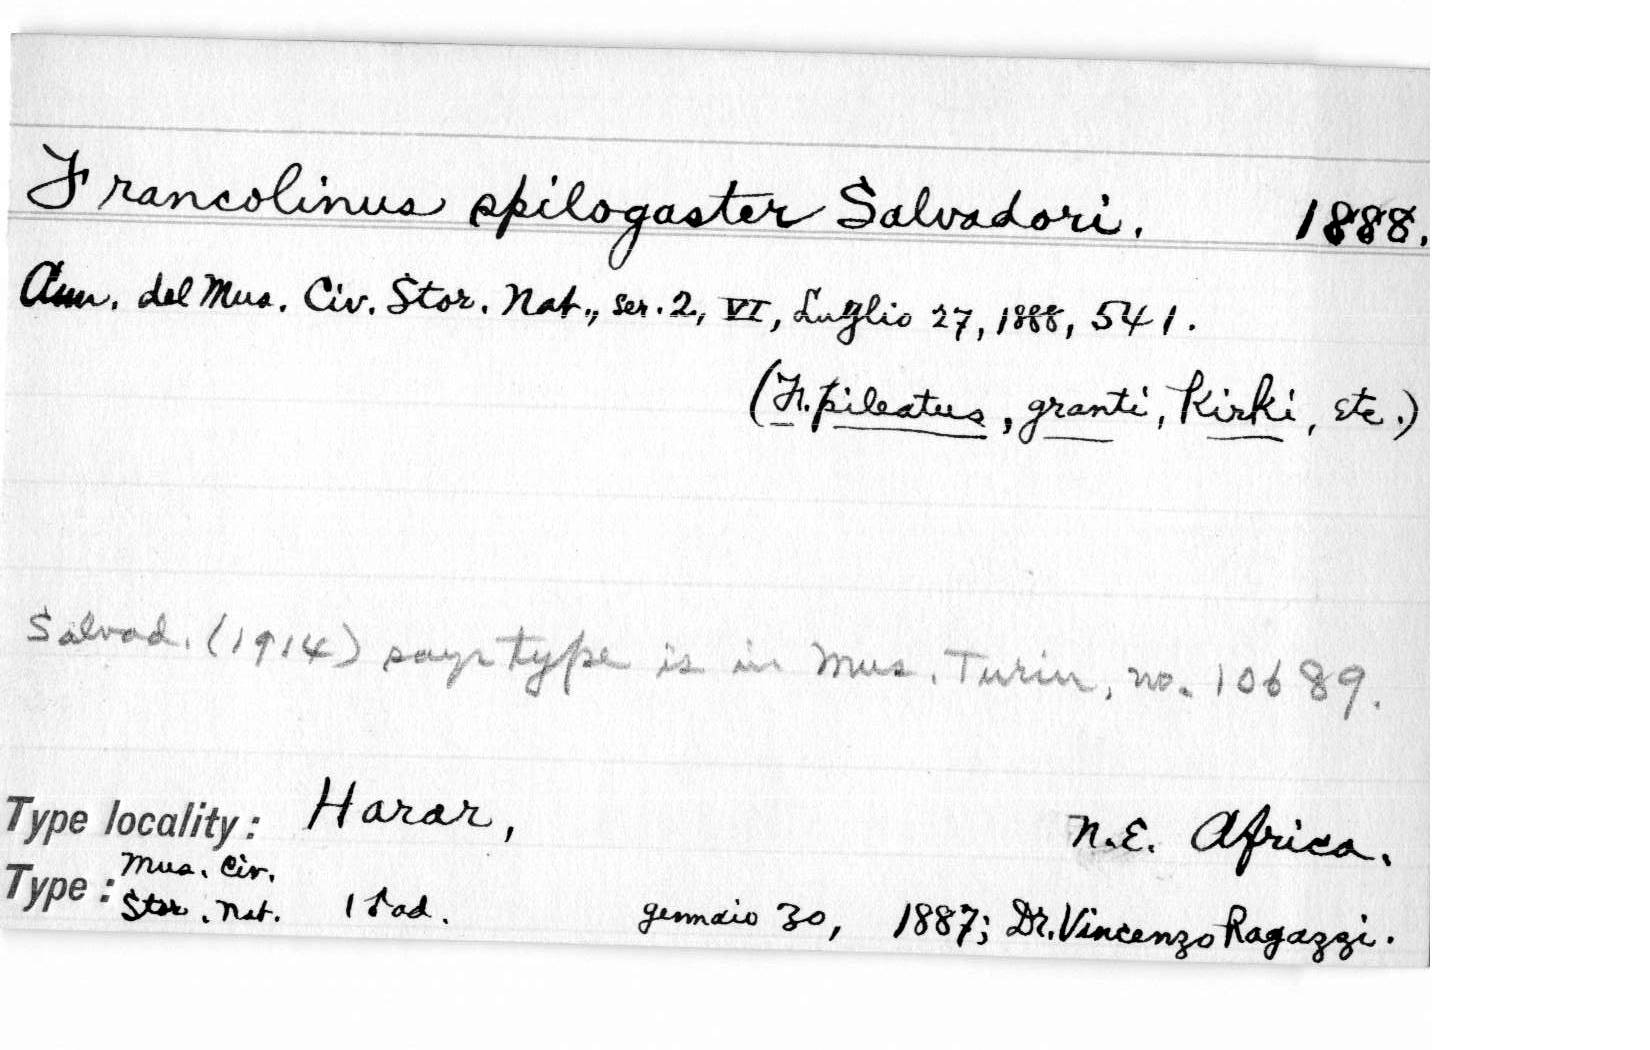 Francolinus spilogaster Salvadori. 1888.
Ann. del Mus. Civ. Stor. Nat., ser. 2, VI, Luglio 27, 1888, 541.
(Fr. pileatus, granti, Kirki, etc.)
Salvad. (1914) says type is in Mus. Turin, no. 10689.
Type locality: Harar, N.E. Africa.
Type: Mus. Civ. Stor. Nat. 1 ♂ ad. gennaio 30, 1887; Dr. Vincenzo Ragazzi.